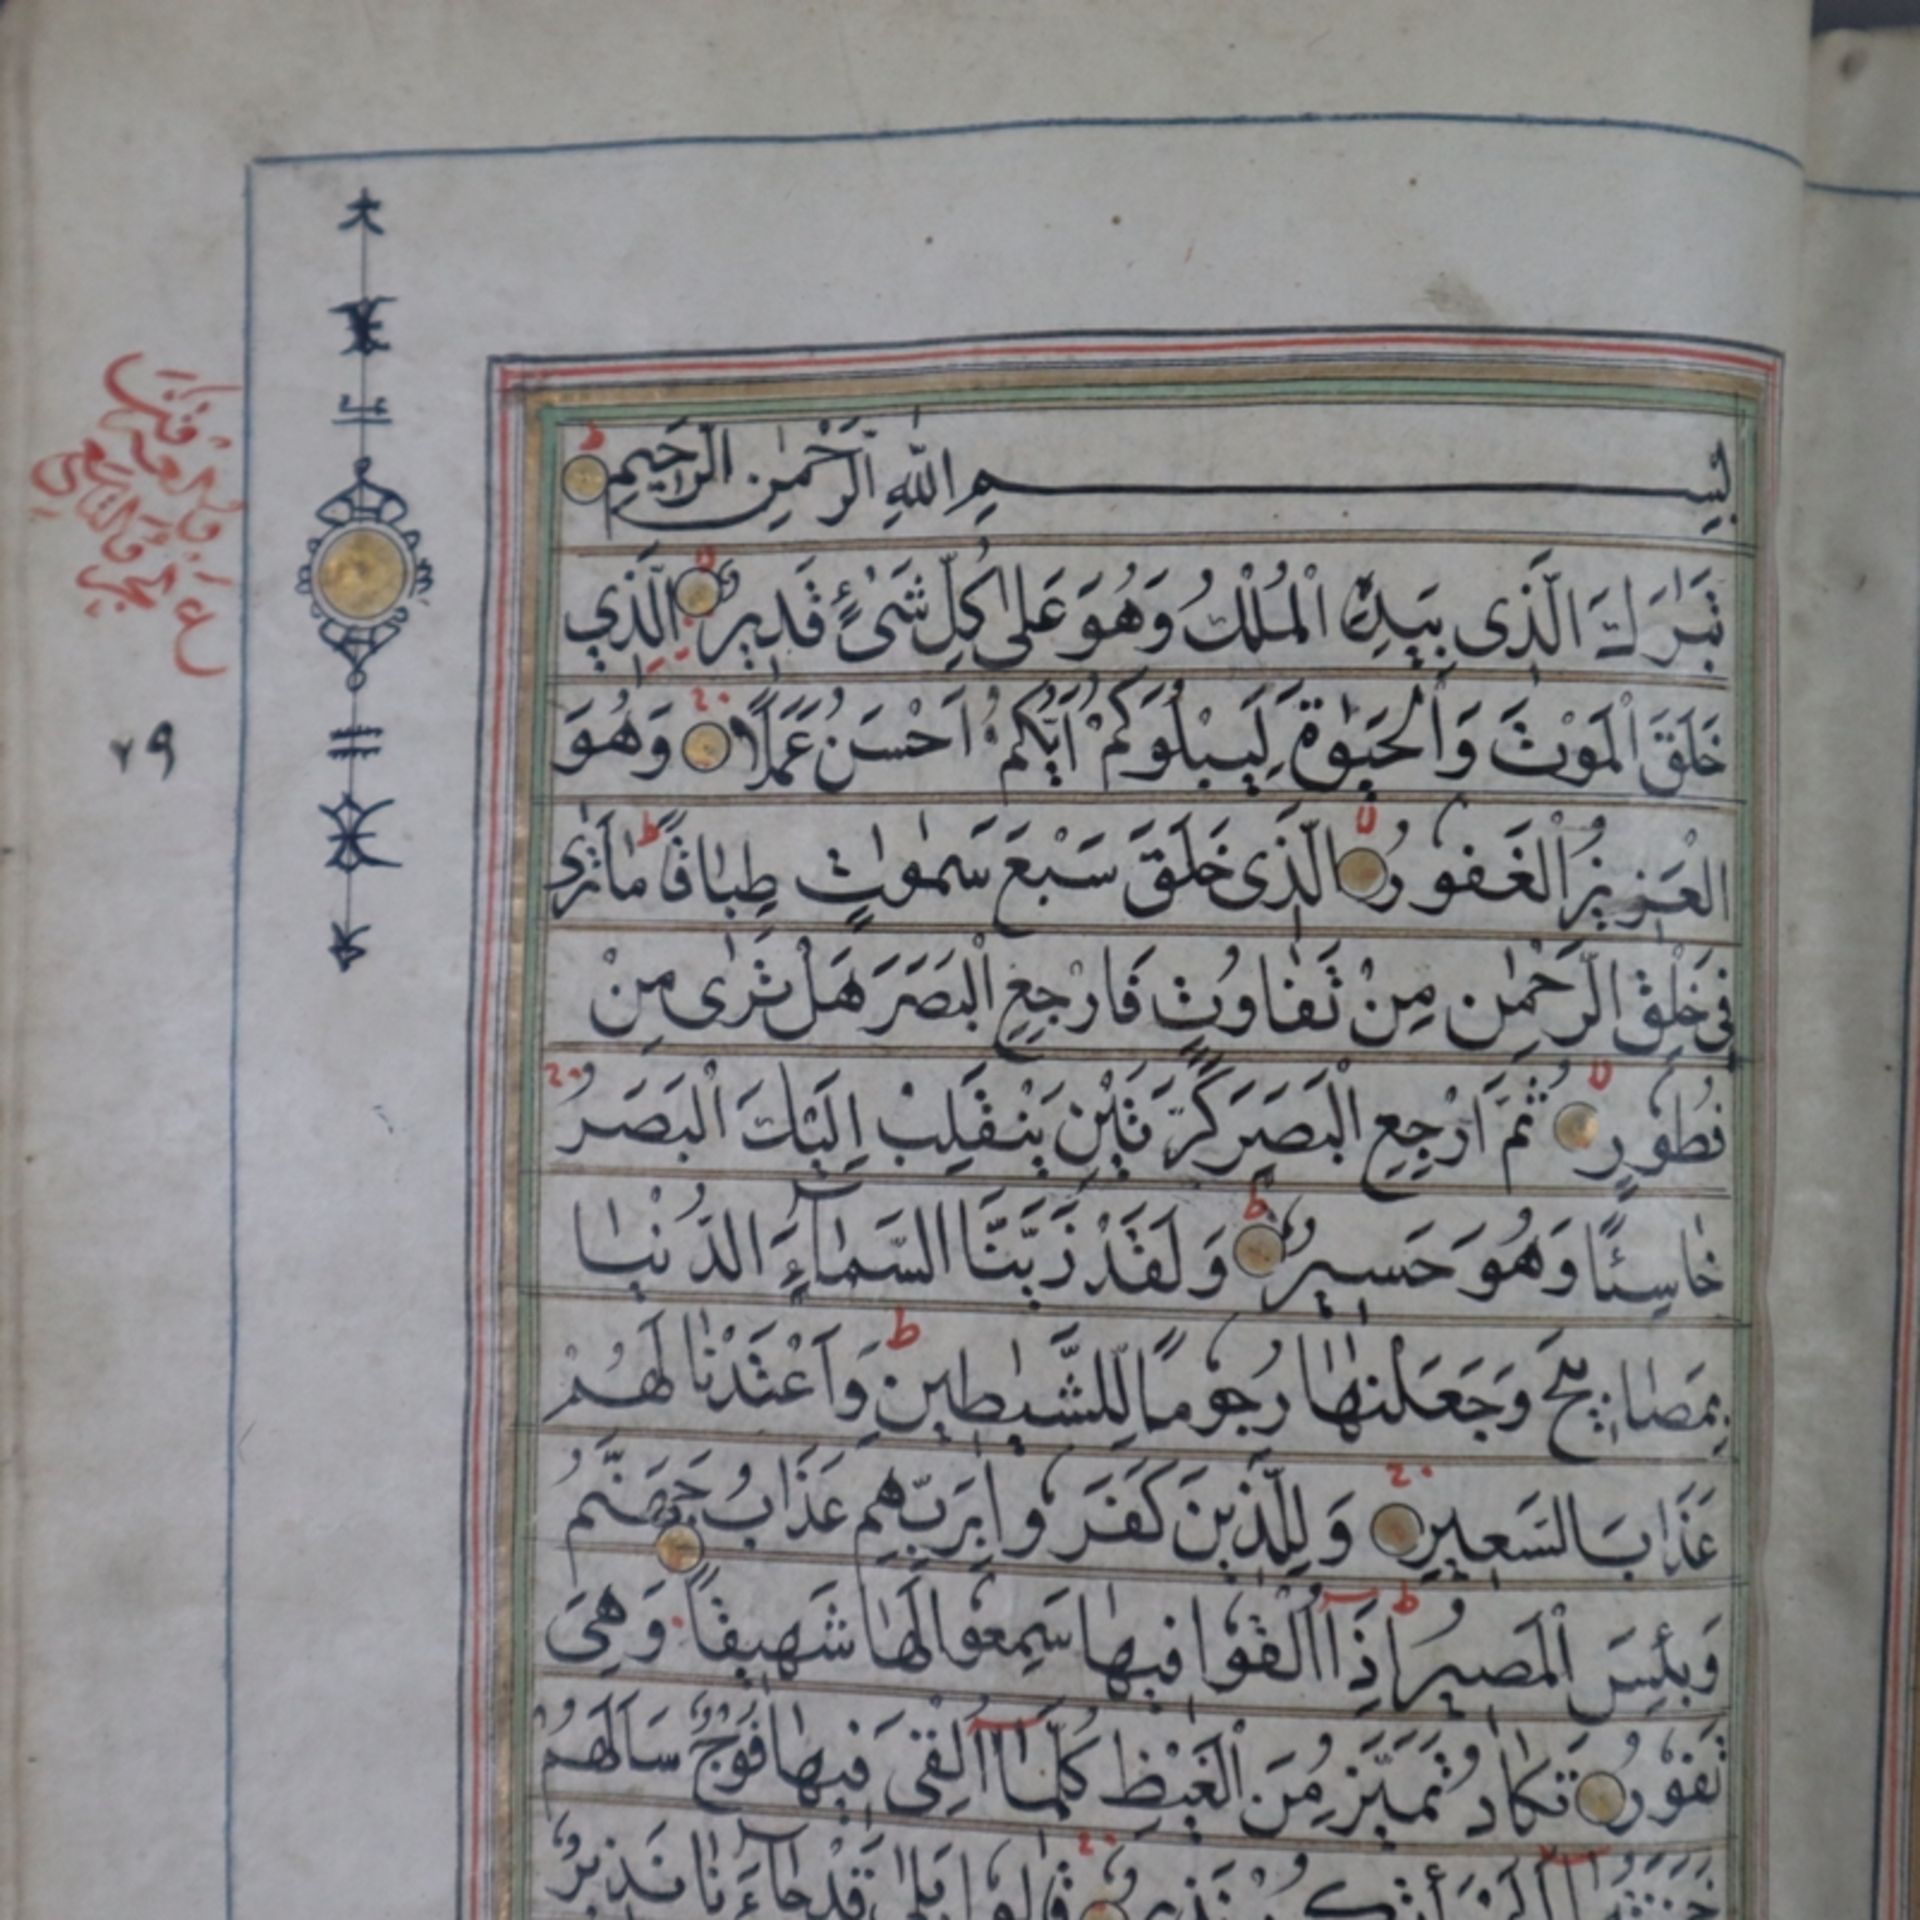 بِسْمِ اللّٰهِ الرَّحْمٰنِ الرَّحِيمِ ط
تَبٰرَكَ الَّذِى بِيَدِهِ الْمُلْكُ وَهُوَ عَلٰى كُلِّ شَىْءٍ قَدِيرٌ الَّذِي
خَلَقَ الْمَوْتَ وَالْحَيٰوةَ لِيَبْلُوَكُمْ اَيُّكُمْ اَحْسَنُ عَمَلًا وَهُوَ
الْعَزِيزُ الْغَفُورُ الَّذِى خَلَقَ سَبْعَ سَمٰوٰتٍ طِبَاقًا ط مَا تَرٰى
فِى خَلْقِ الرَّحْمٰنِ مِنْ تَفَاوُتٍ فَارْجِعِ الْبَصَرَ هَلْ تَرٰى مِنْ
فُطُورٍ ثُمَّ ارْجِعِ الْبَصَرَ كَرَّتَيْنِ يَنْقَلِبْ اِلَيْكَ الْبَصَرُ
خَاسِئًا وَهُوَ حَسِيرٌ ط وَلَقَدْ زَيَّنَّا السَّمَاءَ الدُّنْيَا
بِمَصَابِيحَ وَجَعَلْنٰهَا رُجُومًا لِلشَّيٰطِينِ ط وَاَعْتَدْنَا لَهُمْ
عَذَابَ السَّعِيرِ وَلِلَّذِينَ كَفَرُوا بِرَبِّهِمْ عَذَابُ جَهَنَّمَ
وَبِئْسَ الْمَصِيرُ ط اِذَا اُلْقُوا فِيهَا سَمِعُوا لَهَا شَهِيقًا وَهِىَ
تَفُورُ تَكَادُ تَمَيَّزُ مِنَ الْغَيْظِ كُلَّمَا اُلْقِىَ فِيهَا فَوْجٌ سَاَلَهُمْ
خَزَنَتُهَا اَلَمْ يَأْتِكُمْ نَذِيرٌ قَالُوا بَلٰى قَدْ جَاءَنَا نَذِيرٌ
٢٩